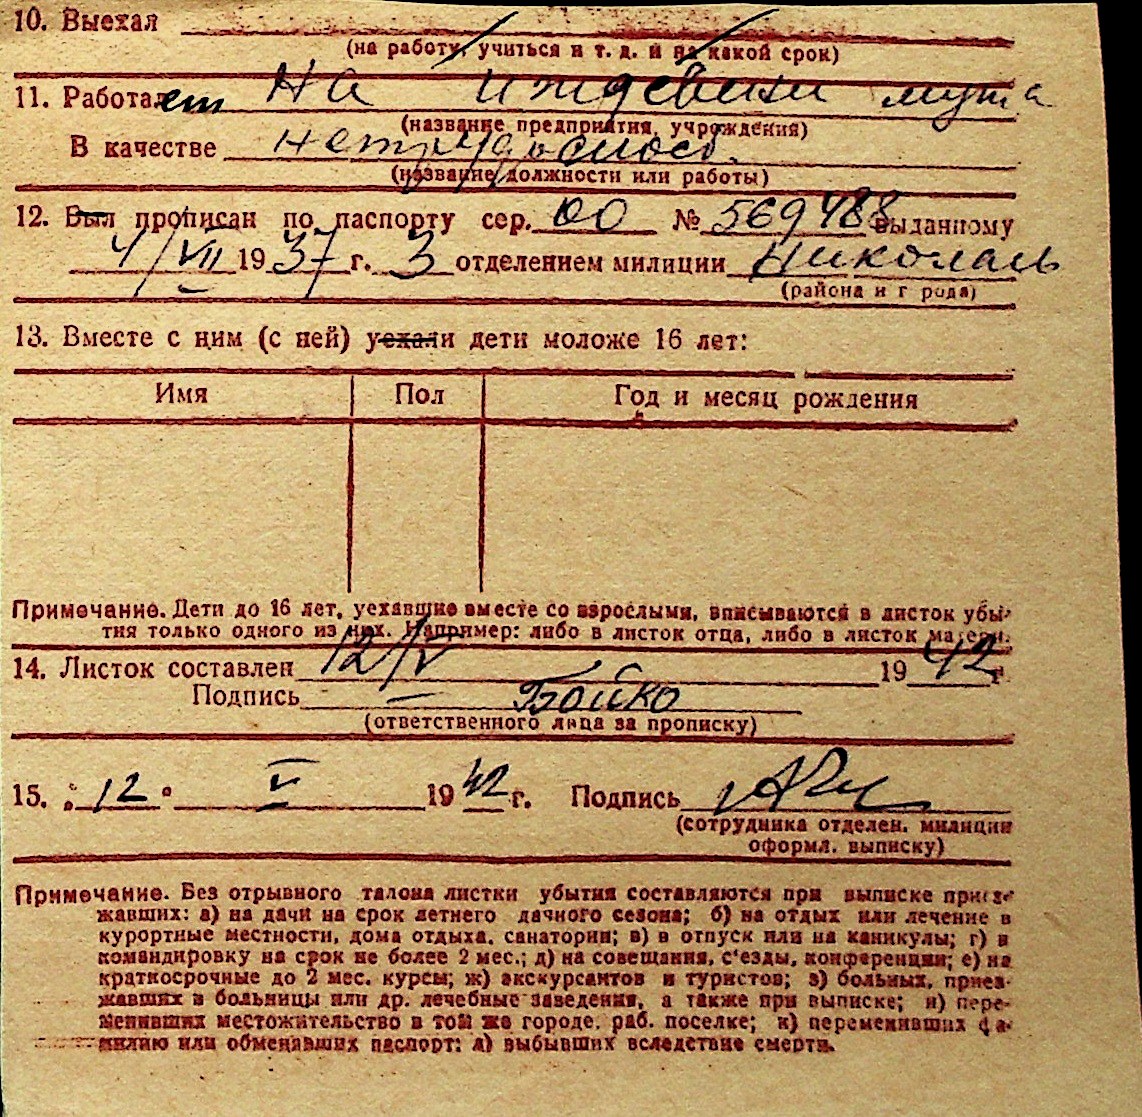 10. Выехал
(на работу, учиться и т. д. и на какой срок)
11. Работает На иждевении мужа
(название предприятия, учреждения)
В качестве нетрудоспособ.
(название должности или работы)
12. Был прописан по паспорту сер. ОО № 569488 выданному
4/VII 1937 г. 3 отделением милиции Николаев
(района и города)
13. Вместе с ним (с ней) уехали дети моложе 16 лет:
Имя Пол Год и месяц рождения
Примечание. Дети до 16 лет, уехавшие вместе со взрослыми, вписываются в листок убы-
тия только одного из них. Например: либо в листок отца, либо в листок матери.
14. Листок составлен 12/V 1942 г.
Подпись — Бойко
(ответственного лица за прописку)
15. „12“ V 1942 г. Подпись
(сотрудника отделен. милиции
оформл. выписку)
Примечание. Без отрывного талона листки убытия составляются при выписке приез-
жавших: а) на дачи на срок летнего дачного сезона; б) на отдых или лечение в
курортные местности, дома отдыха, санатории; в) в отпуск или на каникулы; г) в
командировку на срок не более 2 мес.; д) на совещания, с'езды, конференции; е) на
краткосрочные до 2 мес. курсы; ж) экскурсантов и туристов; з) больных, приез-
жавших в больницы или др. лечебные заведения, а также при выписке; и) пере-
менивших местожительство в том же городе, раб. поселке; к) переменивших фа-
милию или обменявших паспорт; л) выбывших вследствие смерти.